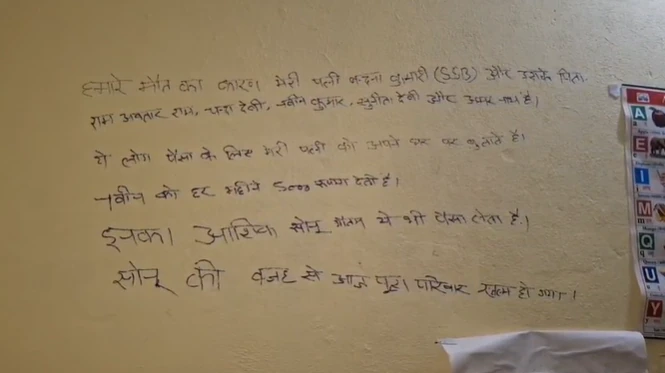 हमारे मौत का कारण मेरी पत्नी कुमारी (SSB) और उसके पिता
राम अवतार राम, देवी, नवीन कुमार, सुनीता देवी और अमर है।
ये लोग पैसा के लिए मेरी पत्नी को अपने घर पर बुलाते है।
नवीन को हर महीने 5000 रूपया देती है।
इनका आशिक सोनू भी पैसा लेता है।
सोनू की वजह से आज पूरा परिवार खत्म हो गया।
A
E
I
M
Q
U
Y